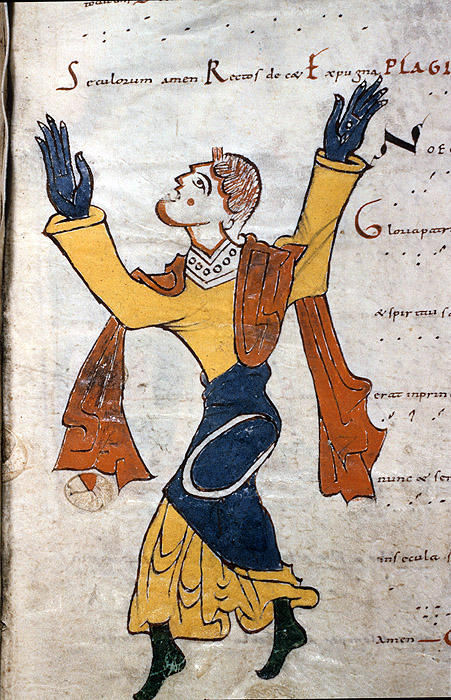 Seculorum amen Rectos decæ Expugna PLAGI
NOE
Gloria patri
& spiritui s
erat inprin
nunc & sem
insecula s
Amen